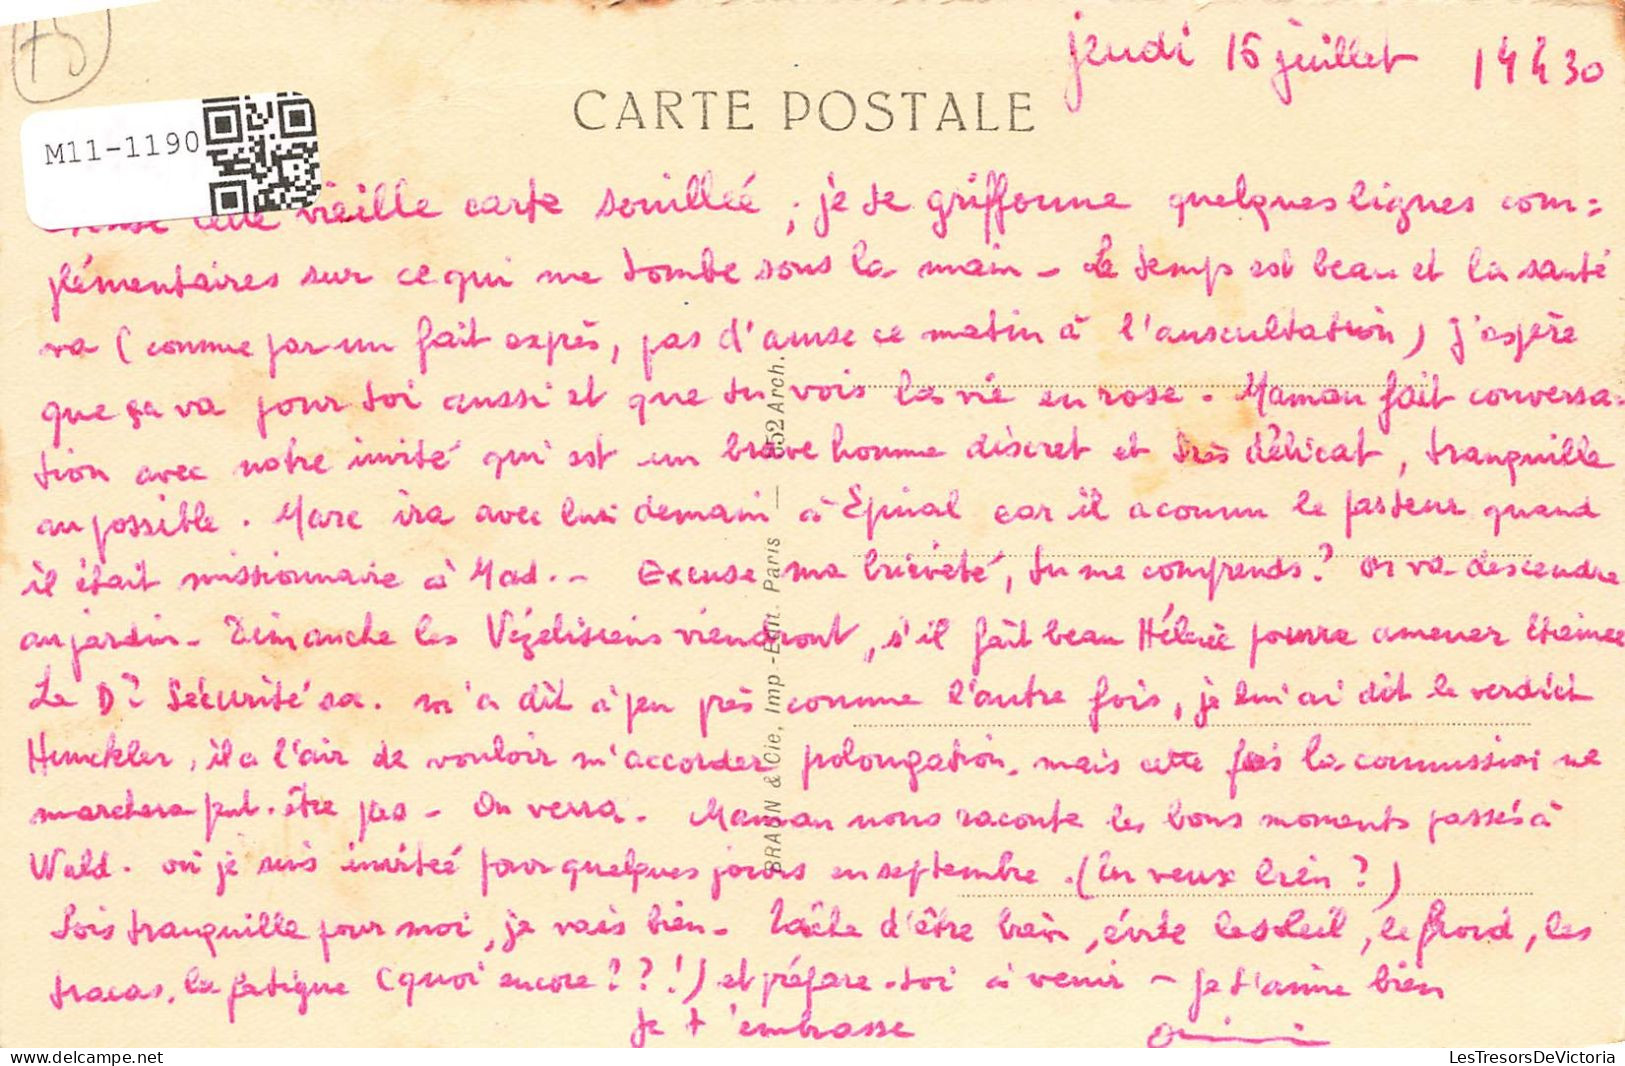 75
jeudi 16 juillet 14h30
M11-1190
CARTE POSTALE
cette vieille carte souillée, je te griffonne quelques lignes com=
plémentaires sur ce qui me tombe sous la main - Le temps est beau et la santé
va (comme par un fait exprès, pas d'amuse ce matin à l'auscultation) J'espère
que ça va pour toi aussi et que tu vois la vie en rose. Maman fait conversa-
tion avec notre invité qui est un brave homme discret et très délicat, tranquille
au possible. Marc ira avec lui demain à Epinal car il a connu le pasteur quand
il était missionnaire à Mad.- Excuse ma brièveté, tu me comprends? On va descendre
au jardin - Dimanche les Vézelisiens viendront, s'il fait beau Hélène pourra amener Etienne
Le Dr Sécurité sa. m'a dit à peu près comme l'autre fois, je lui ai dit le verdict
Hunckler, il a l'air de vouloir m'accorder polongation, mais cette fois la commission ne
marchera peut-être pas - On verra. Maman nous raconte les bons moments passés à
Wald. où je suis invitée pour quelques jours en septembre. (Tu veux bien?)
Sois tranquille pour moi, je vais bien - Tâche d'être bien, évite le soleil, le froid, les
tracas, la fatigue (quoi encore??!) et prépare-toi à venir - je t'aime bien
Je t'embrasse
BRAUN & Cie, Imp.-Edit. Paris — 652 Arch.
LesTresorsDeVictoria